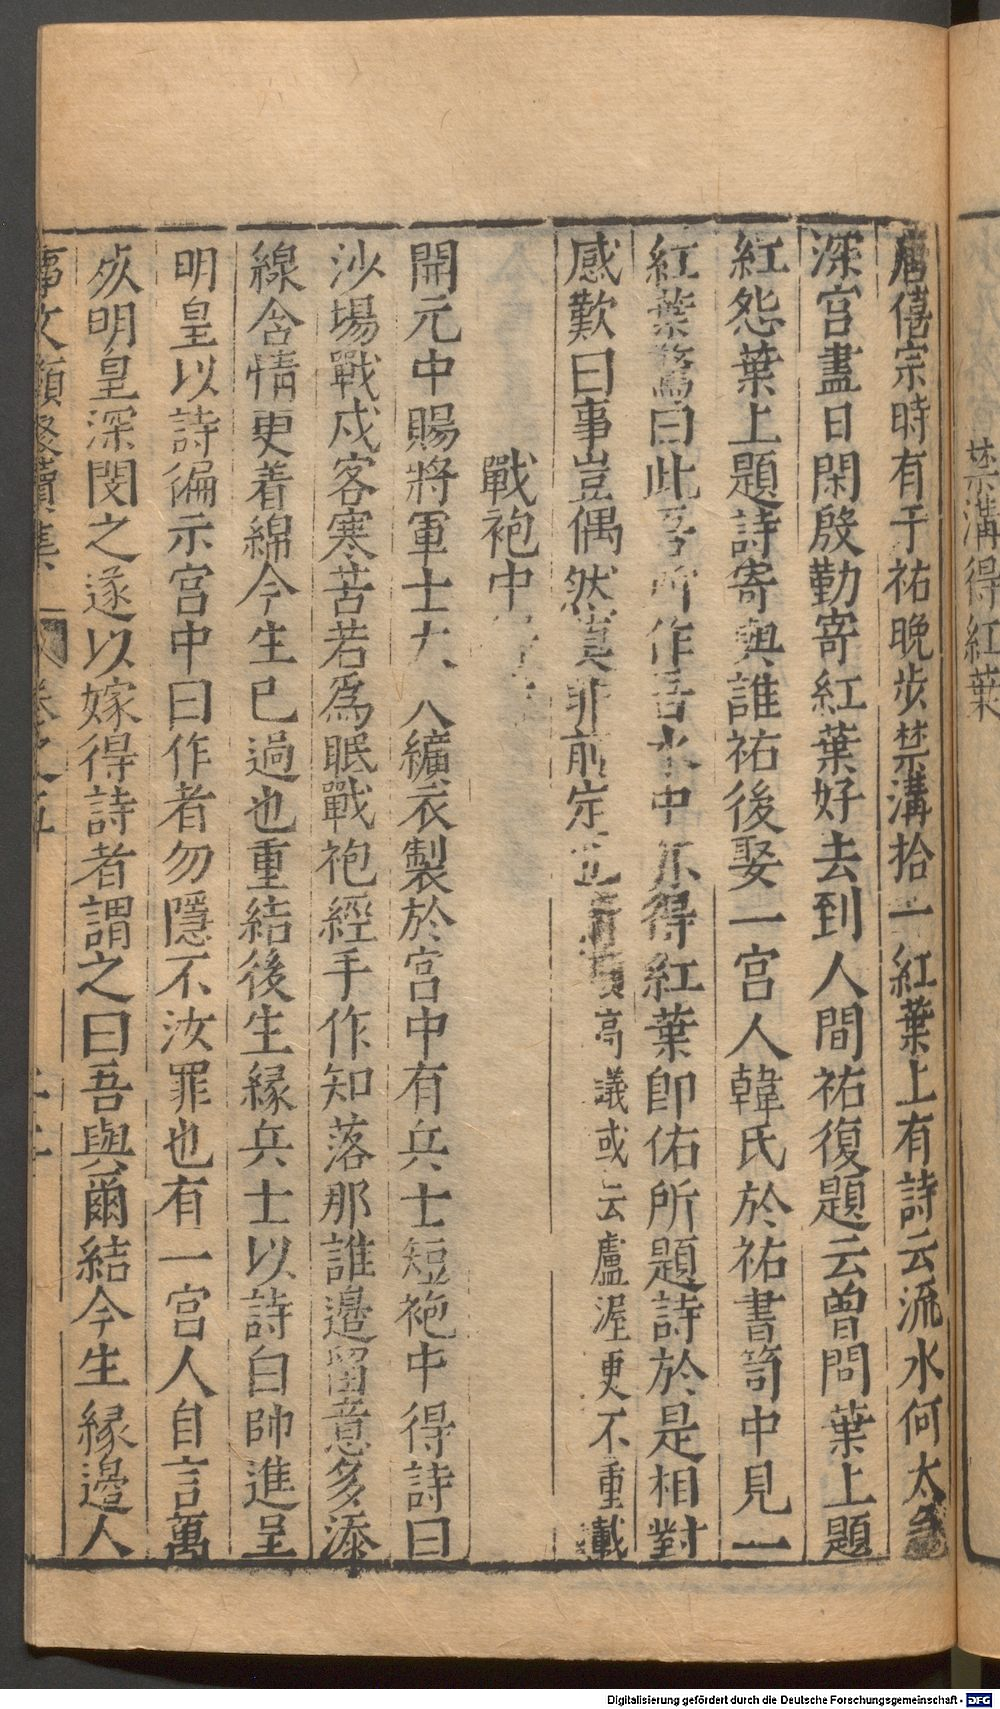 禁溝得紅葉
唐僖宗時有于祐晩步禁溝拾一紅葉上有詩云流水何太急
深宮盡日閑殷勤寄紅葉好去到人間祐復題云曾問葉上題
紅怨葉上題詩寄與誰祐後娶一宮人韓氏於祐書笥中見一
紅葉驚曰此吾所作吾水中亦得紅葉卽佑所題詩於是相對
感歎曰事豈偶然莫非前定也 高議或云盧渥更不重載
戰袍中
開元中賜將軍士 纊衣製於宮中有兵士短袍中得詩曰
沙場戰戍客寒苦若爲眠戰袍經手作知落那誰邊留意多添
線含情更着綿今生已過也重結後生緣兵士以詩白帥進呈
明皇以詩徧示宮中曰作者勿隱不汝罪也有一宮人自言萬
死明皇深閔之遂以嫁得詩者謂之曰吾與爾結今生緣邊人
事文類聚續集 卷之五
Digitalisierung gefördert durch die Deutsche Forschungsgemeinschaft - DFG